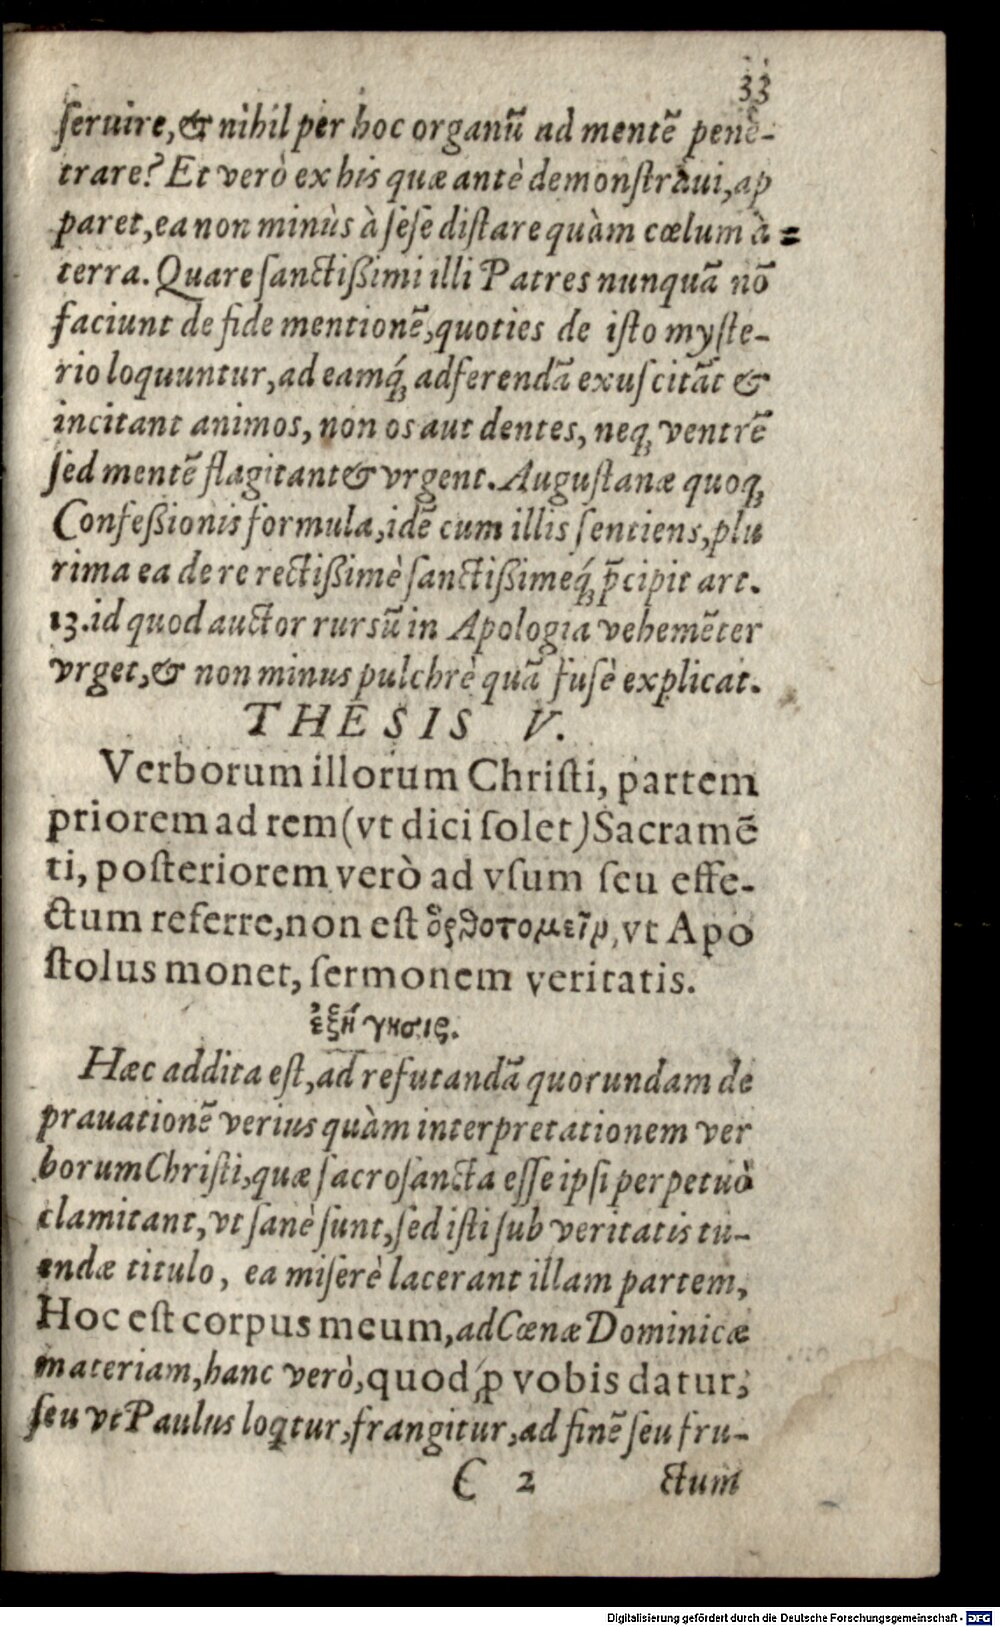 33
ſeruire, & nihil per hoc organū ad mentē pene-
trare? Et verò ex his quæ antè demonſtraui, ap
paret, ea non minùs à ſeſe diſtare quàm cœlum à
terra. Quare ſanctißimi illi Patres nunquā nō
faciunt de fide mentionē, quoties de iſto myſte-
rio loquuntur, ad eamq́; adferendā exuſcitāt &
incitant animos, non os aut dentes, neq; ventrē
ſed mentē flagitant & vrgent. Auguſtanæ quoq;
Confeßionis formula, idē cum illis ſentiens, plu
rima ea de re rectißimè ſanctißimeq́; p̄cipit art.
13. id quod auctor rurſū in Apologia vehemēter
vrget, & non minus pulchrè quā fusè explicat.
THESIS V.
Verborum illorum Chriſti, partem
priorem ad rem (vt dici ſolet) Sacramē
ti, poſteriorem verò ad vſum ſeu effe-
ctum referre, non eſt ὀρθοτομεῖν, vt Apo
ſtolus monet, ſermonem veritatis.
ἐξήγησις.
Hæc addita eſt, ad refutandā quorundam de
prauationē verius quàm interpretationem ver
borum Chriſti, quæ ſacroſancta eſſe ipſi perpetuò
clamitant, vt ſanè ſunt, ſed iſti ſub veritatis tu-
endæ titulo, ea miſerè lacerant illam partem,
Hoc eſt corpus meum, ad Cœnæ Dominicæ
materiam, hanc verò, quod ꝓ vobis datur,
ſeu vt Paulus loqtur, frangitur, ad finē ſeu fru-
C 2 ctum
Digitalisierung gefördert durch die Deutsche Forschungsgemeinschaft - DFG